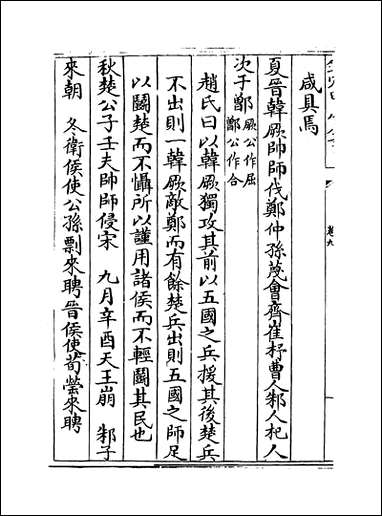 卷九
咸具焉
夏晉韓厥帥師伐鄭仲孫蔑會齊崔杼曹人邾人杞人
次于鄫厥公作屈鄫公作合
趙氏曰以韓厥獨攻其前以五國之兵援其後楚兵
不出則一韓厥敵鄭而有餘楚兵出則五國之師足
以鬭楚而不懼所以謹用諸侯而不輕鬭其民也
秋楚公子壬夫帥師侵宋 九月辛酉天王崩 邾子
來朝 冬衛侯使公孫剽來聘晉侯使荀罃來聘